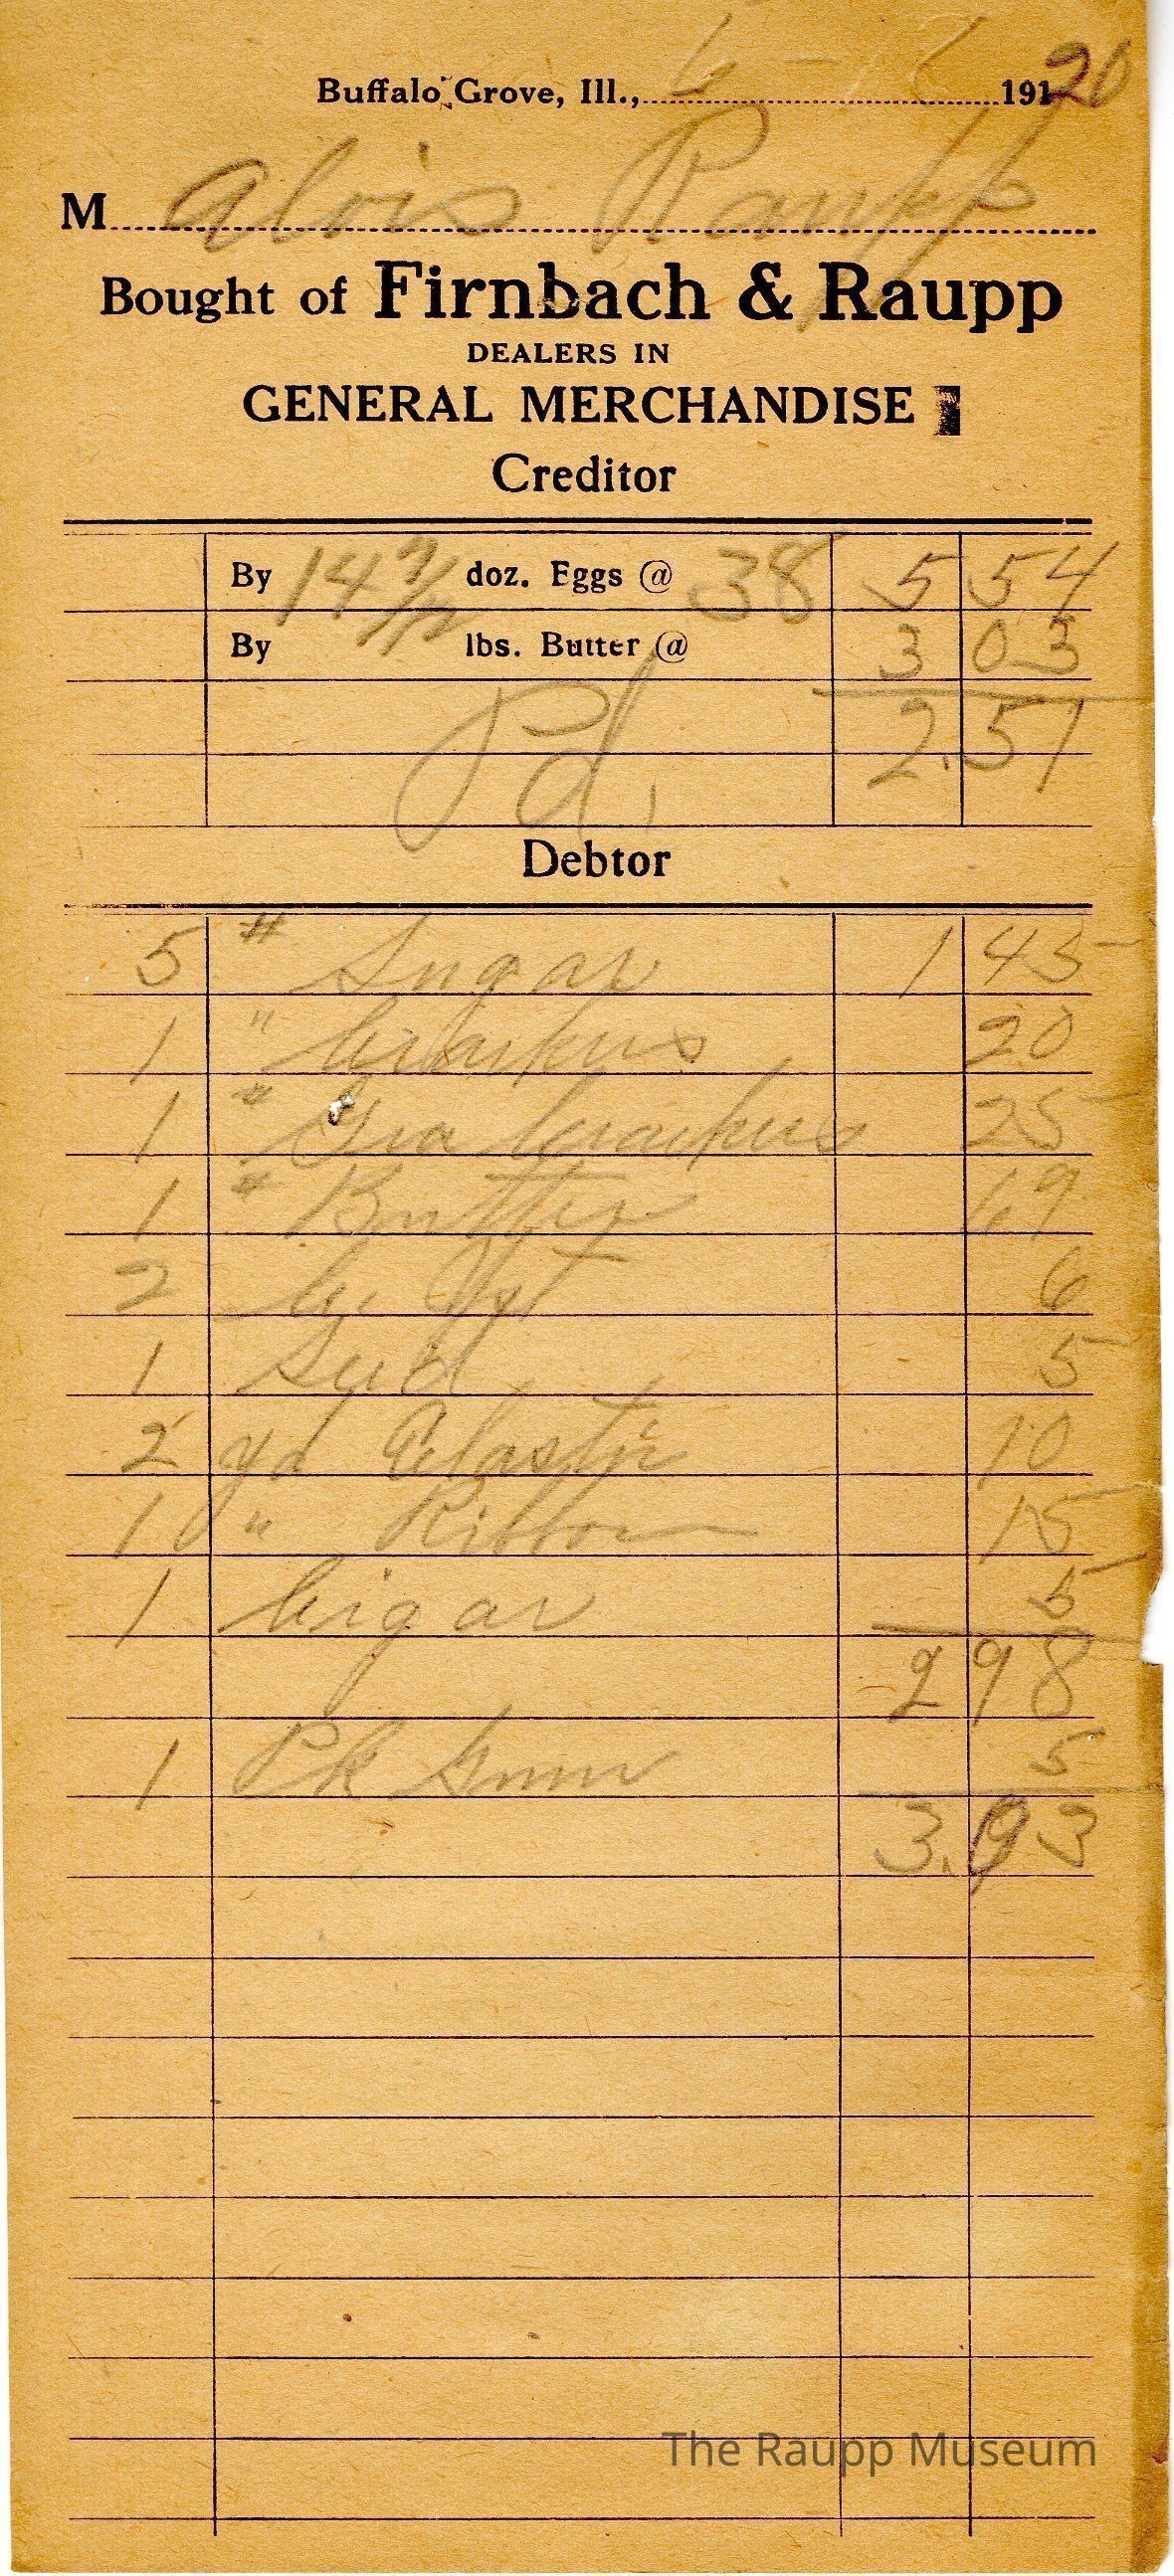 Buffalo Grove, Ill., 6 - 6 19120
M Alois Raupp
Bought of Firnbach & Raupp
DEALERS IN
GENERAL MERCHANDISE
Creditor
By 14 7/12 doz. Eggs @ 38 5 54
By lbs. Butter @ 3 03
Pd. 2.51
Debtor
5 # Sugar 1 45
1 " 20
1 # Gra Crackers 25
1 # Butter 69
2 C. 6
1 5
2 yd Elastic 10
1 " Ribbon 15
1 Cigar 5
2 98
1 Pk Gum 5
3.03
The Raupp Museum